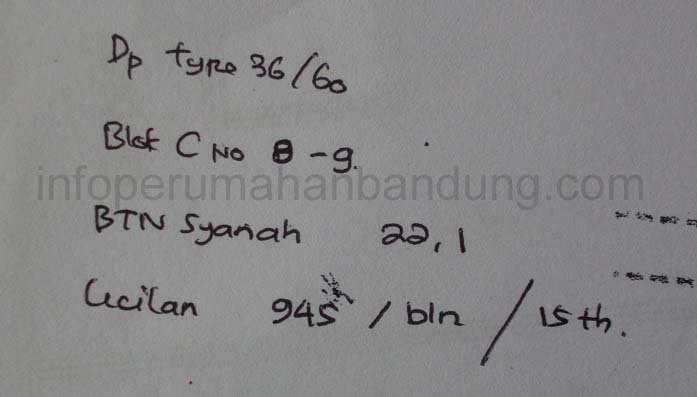 Dp type 36/60
Blok C No 8 - 9.
infoperumahanbandung.com
BTN Syariah 22,1
Cicilan 945 / bln / 15 th.